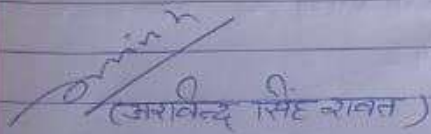 (अरविन्द सिंह रावत)